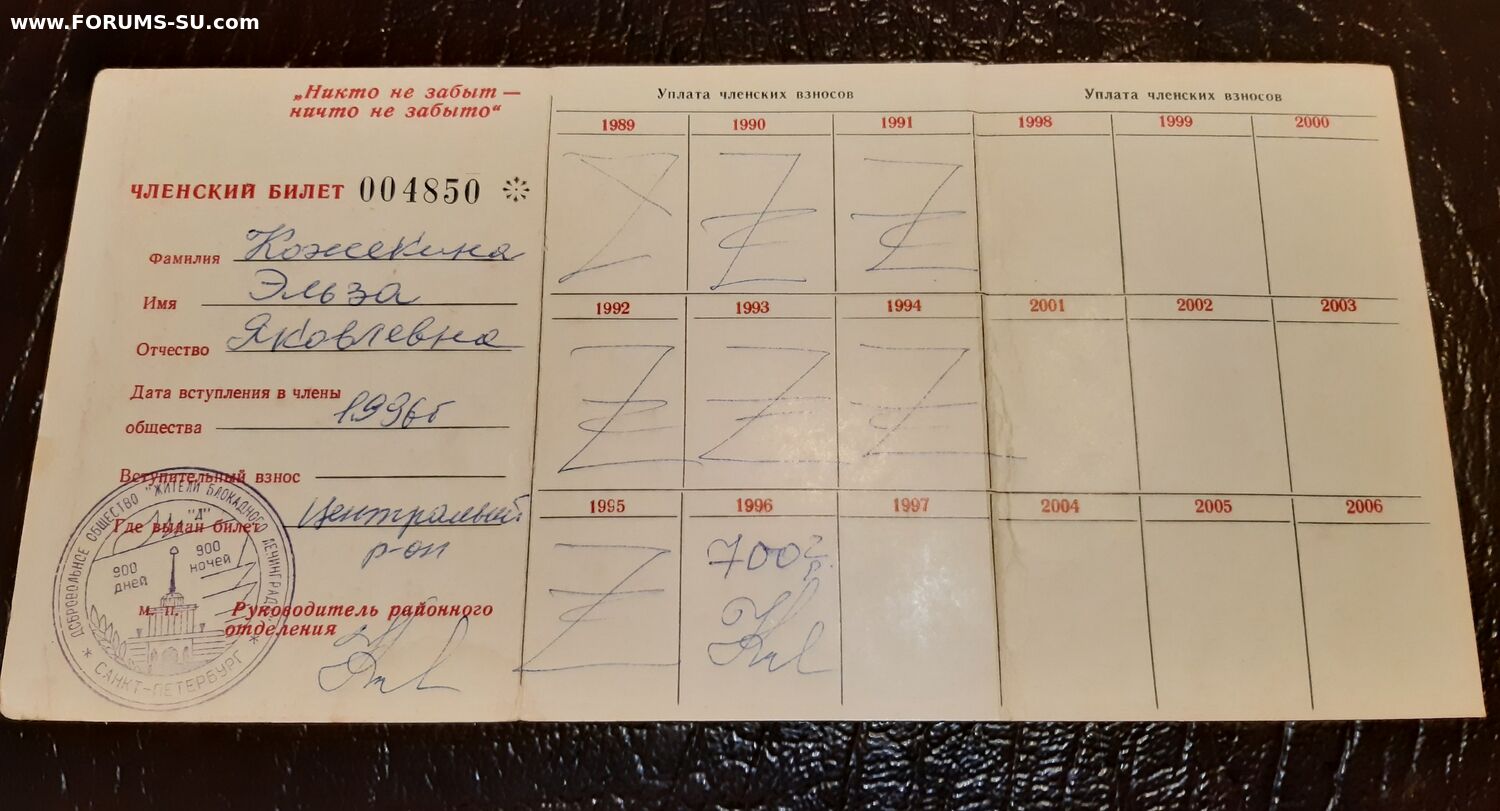 www.FORUMS-SU.com
„Никто не забыт —
ничто не забыто“
ЧЛЕНСКИЙ БИЛЕТ 004850
Фамилия Кожекина
Имя Эльза
Отчество Яковлевна
Дата вступления в члены
общества 1996г
Вступительный взнос
Где выдан билет Центральный
р-он
м. п. Руководитель районного
отделения
ДОБРОВОЛЬНОЕ ОБЩЕСТВО "ЖИТЕЛИ БЛОКАДНОГО ЛЕНИНГРАДА"
"Д"
900 дней
900 ночей
* САНКТ-ПЕТЕРБУРГ *
Уплата членских взносов
1989 1990 1991
Z Z Z
1992 1993 1994
Z Z Z
1995 1996 1997
Z 700
Уплата членских взносов
1998 1999 2000
2001 2002 2003
2004 2005 2006